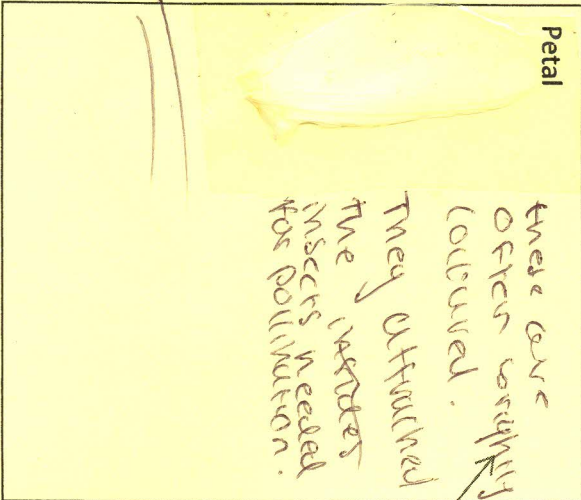 Petal
these are
often brightly
coloured.
They attrached
the
insects needed
for pollination.